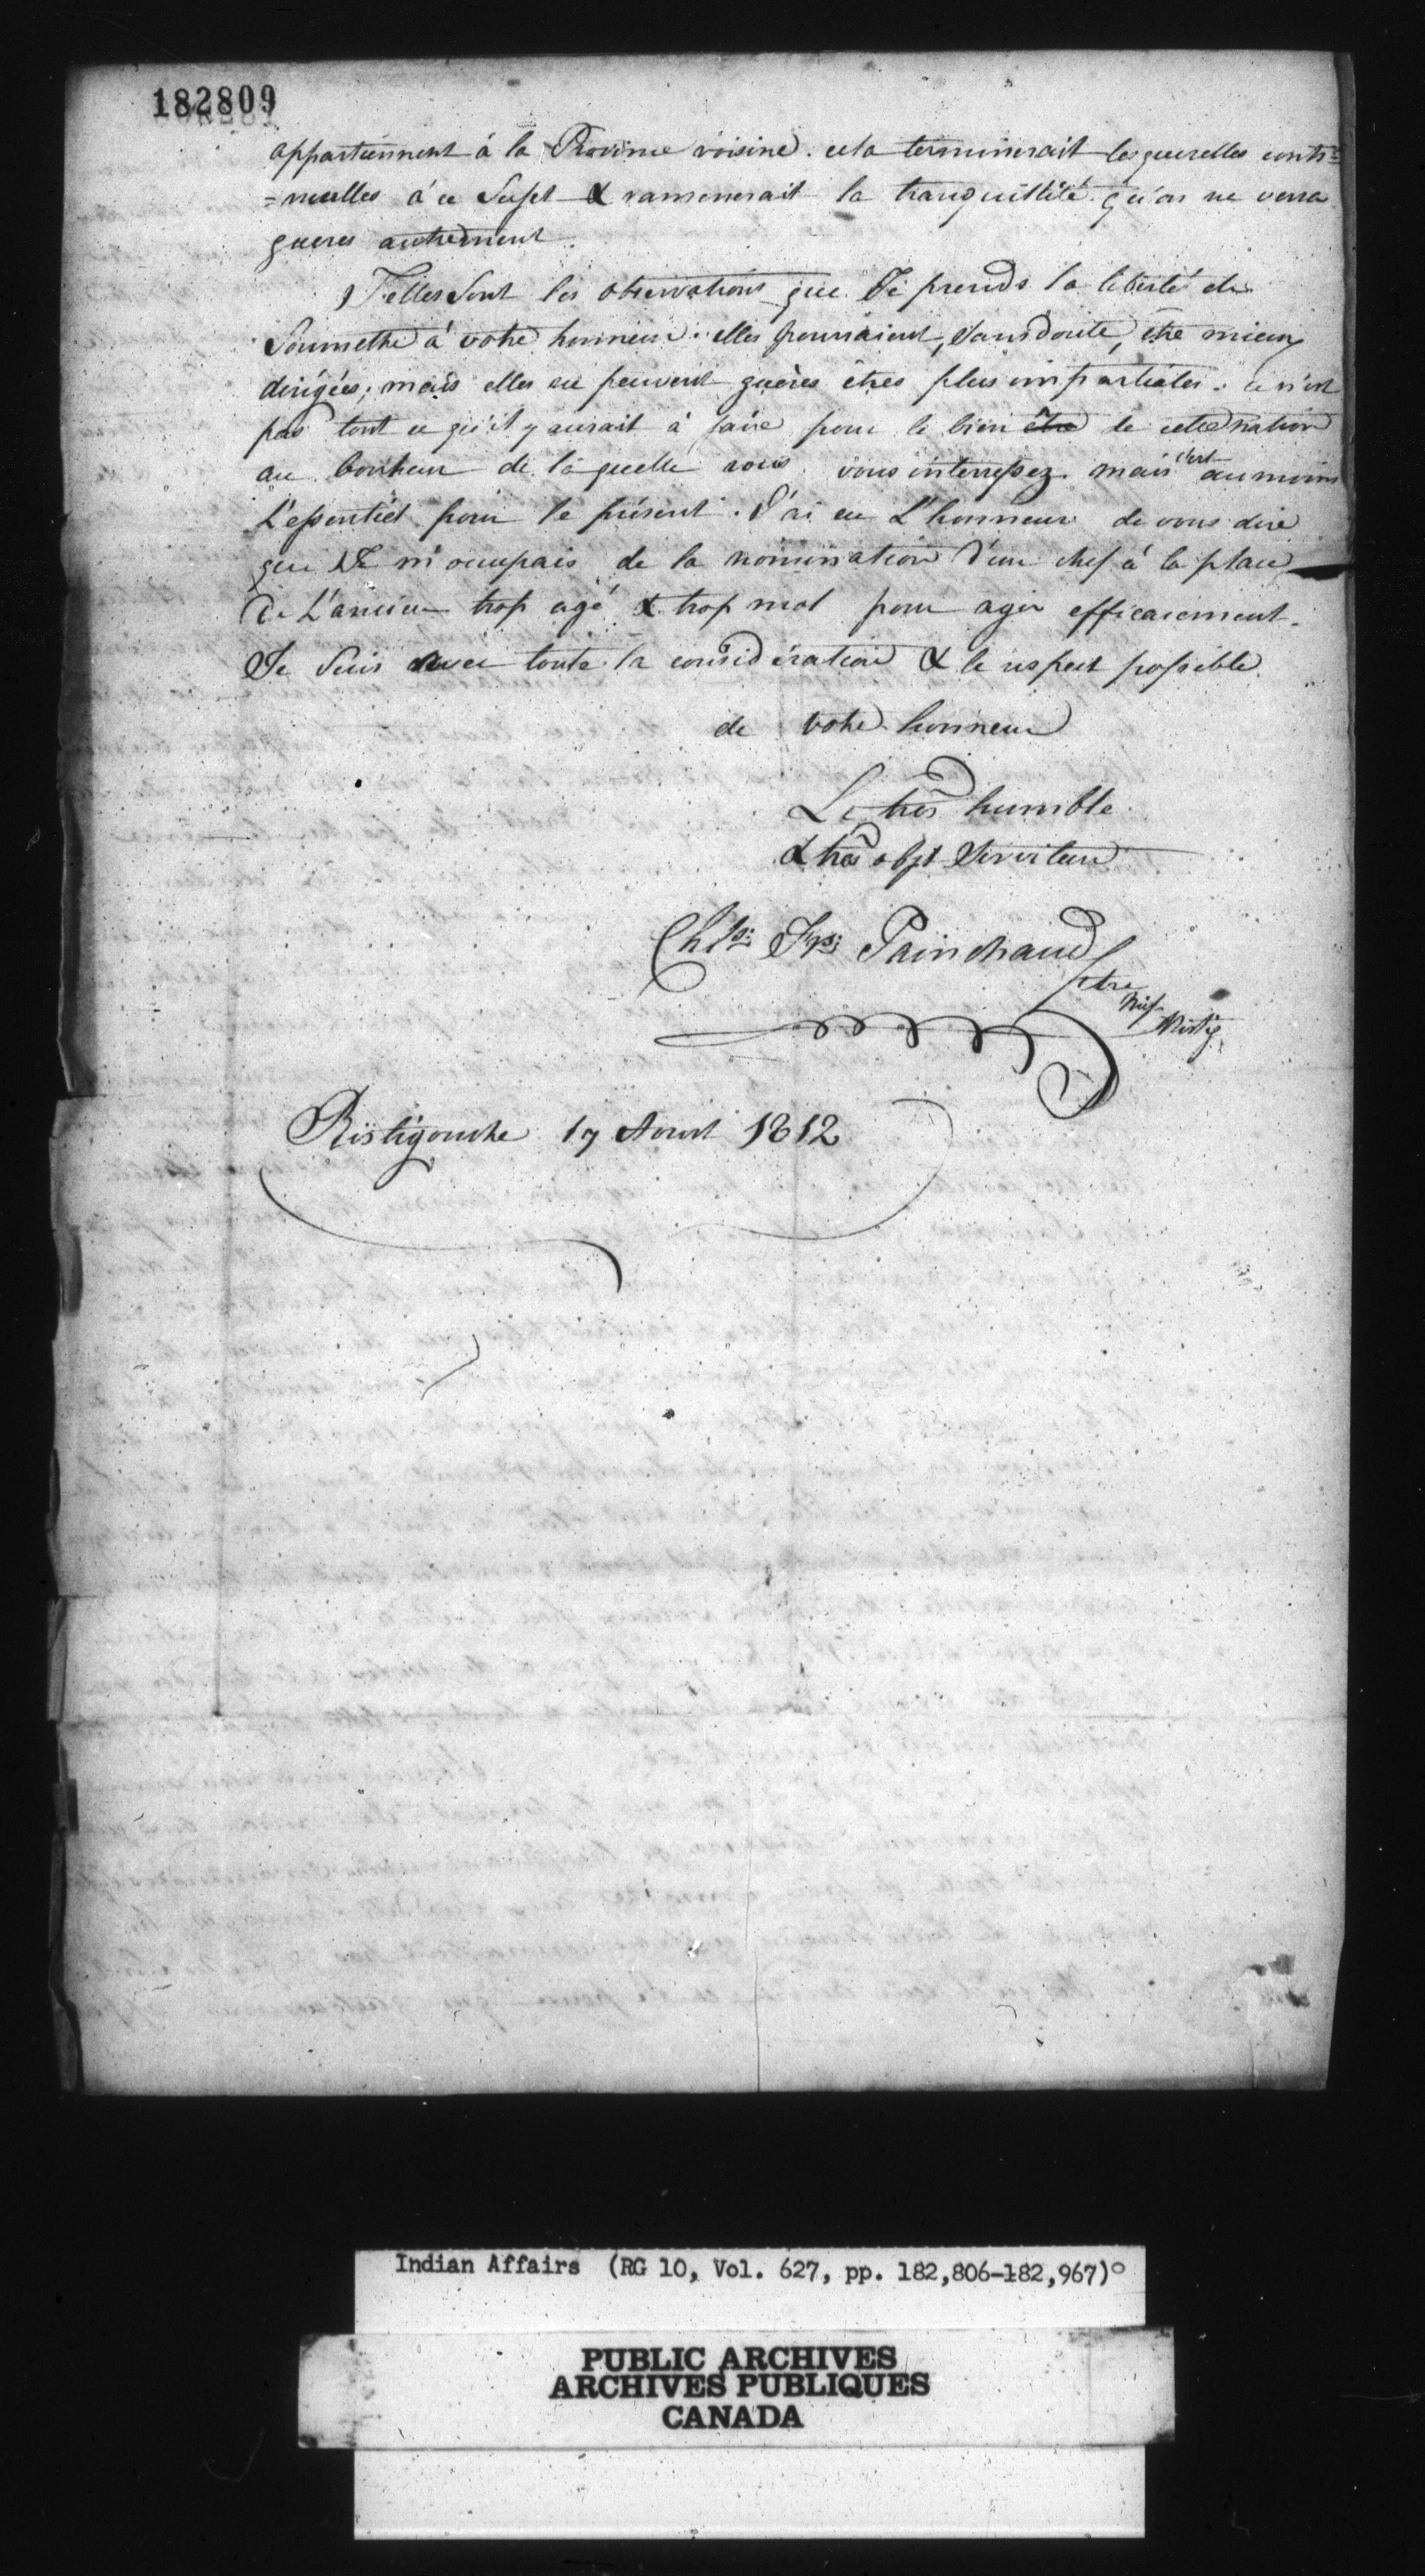 182809
appartiennent à la Province voisine. cela terminerait les querelles conti=
=nuelles à ce Sujet & ramenerait la tranquillité qu'on ne verra
gueres autrement.
Telles sont les observations que Je prends la liberté de
Soumettre à votre honneur. elles pourraient, sans doute, être mieux
dirigées; mais elles ne peuvent guères êtres plus impartiales. ce n'est
pas tout ce qu'il y aurait à faire pour le bien être de cette nation
au bonheur de laquelle vous vous interressez. mais c'est au moins
L'essentiel pour le présent. J'ai eu L'honneur de vous dire
que Je m'occupais de la nomination d'un chef à la place
de L'ancien trop agé & trop mol pour agir efficacement.
Je Suis avec toute la considération & le respect possible.
de votre honneur
Le très humble
& très obst Serviteur
Chls: Frs: Painchaud
Ptre
Mis
Ristig.
Ristigouche 17 Aout 1812
Indian Affairs (RG 10, Vol. 627, pp. 182,806-182,967)
PUBLIC ARCHIVES
ARCHIVES PUBLIQUES
CANADA